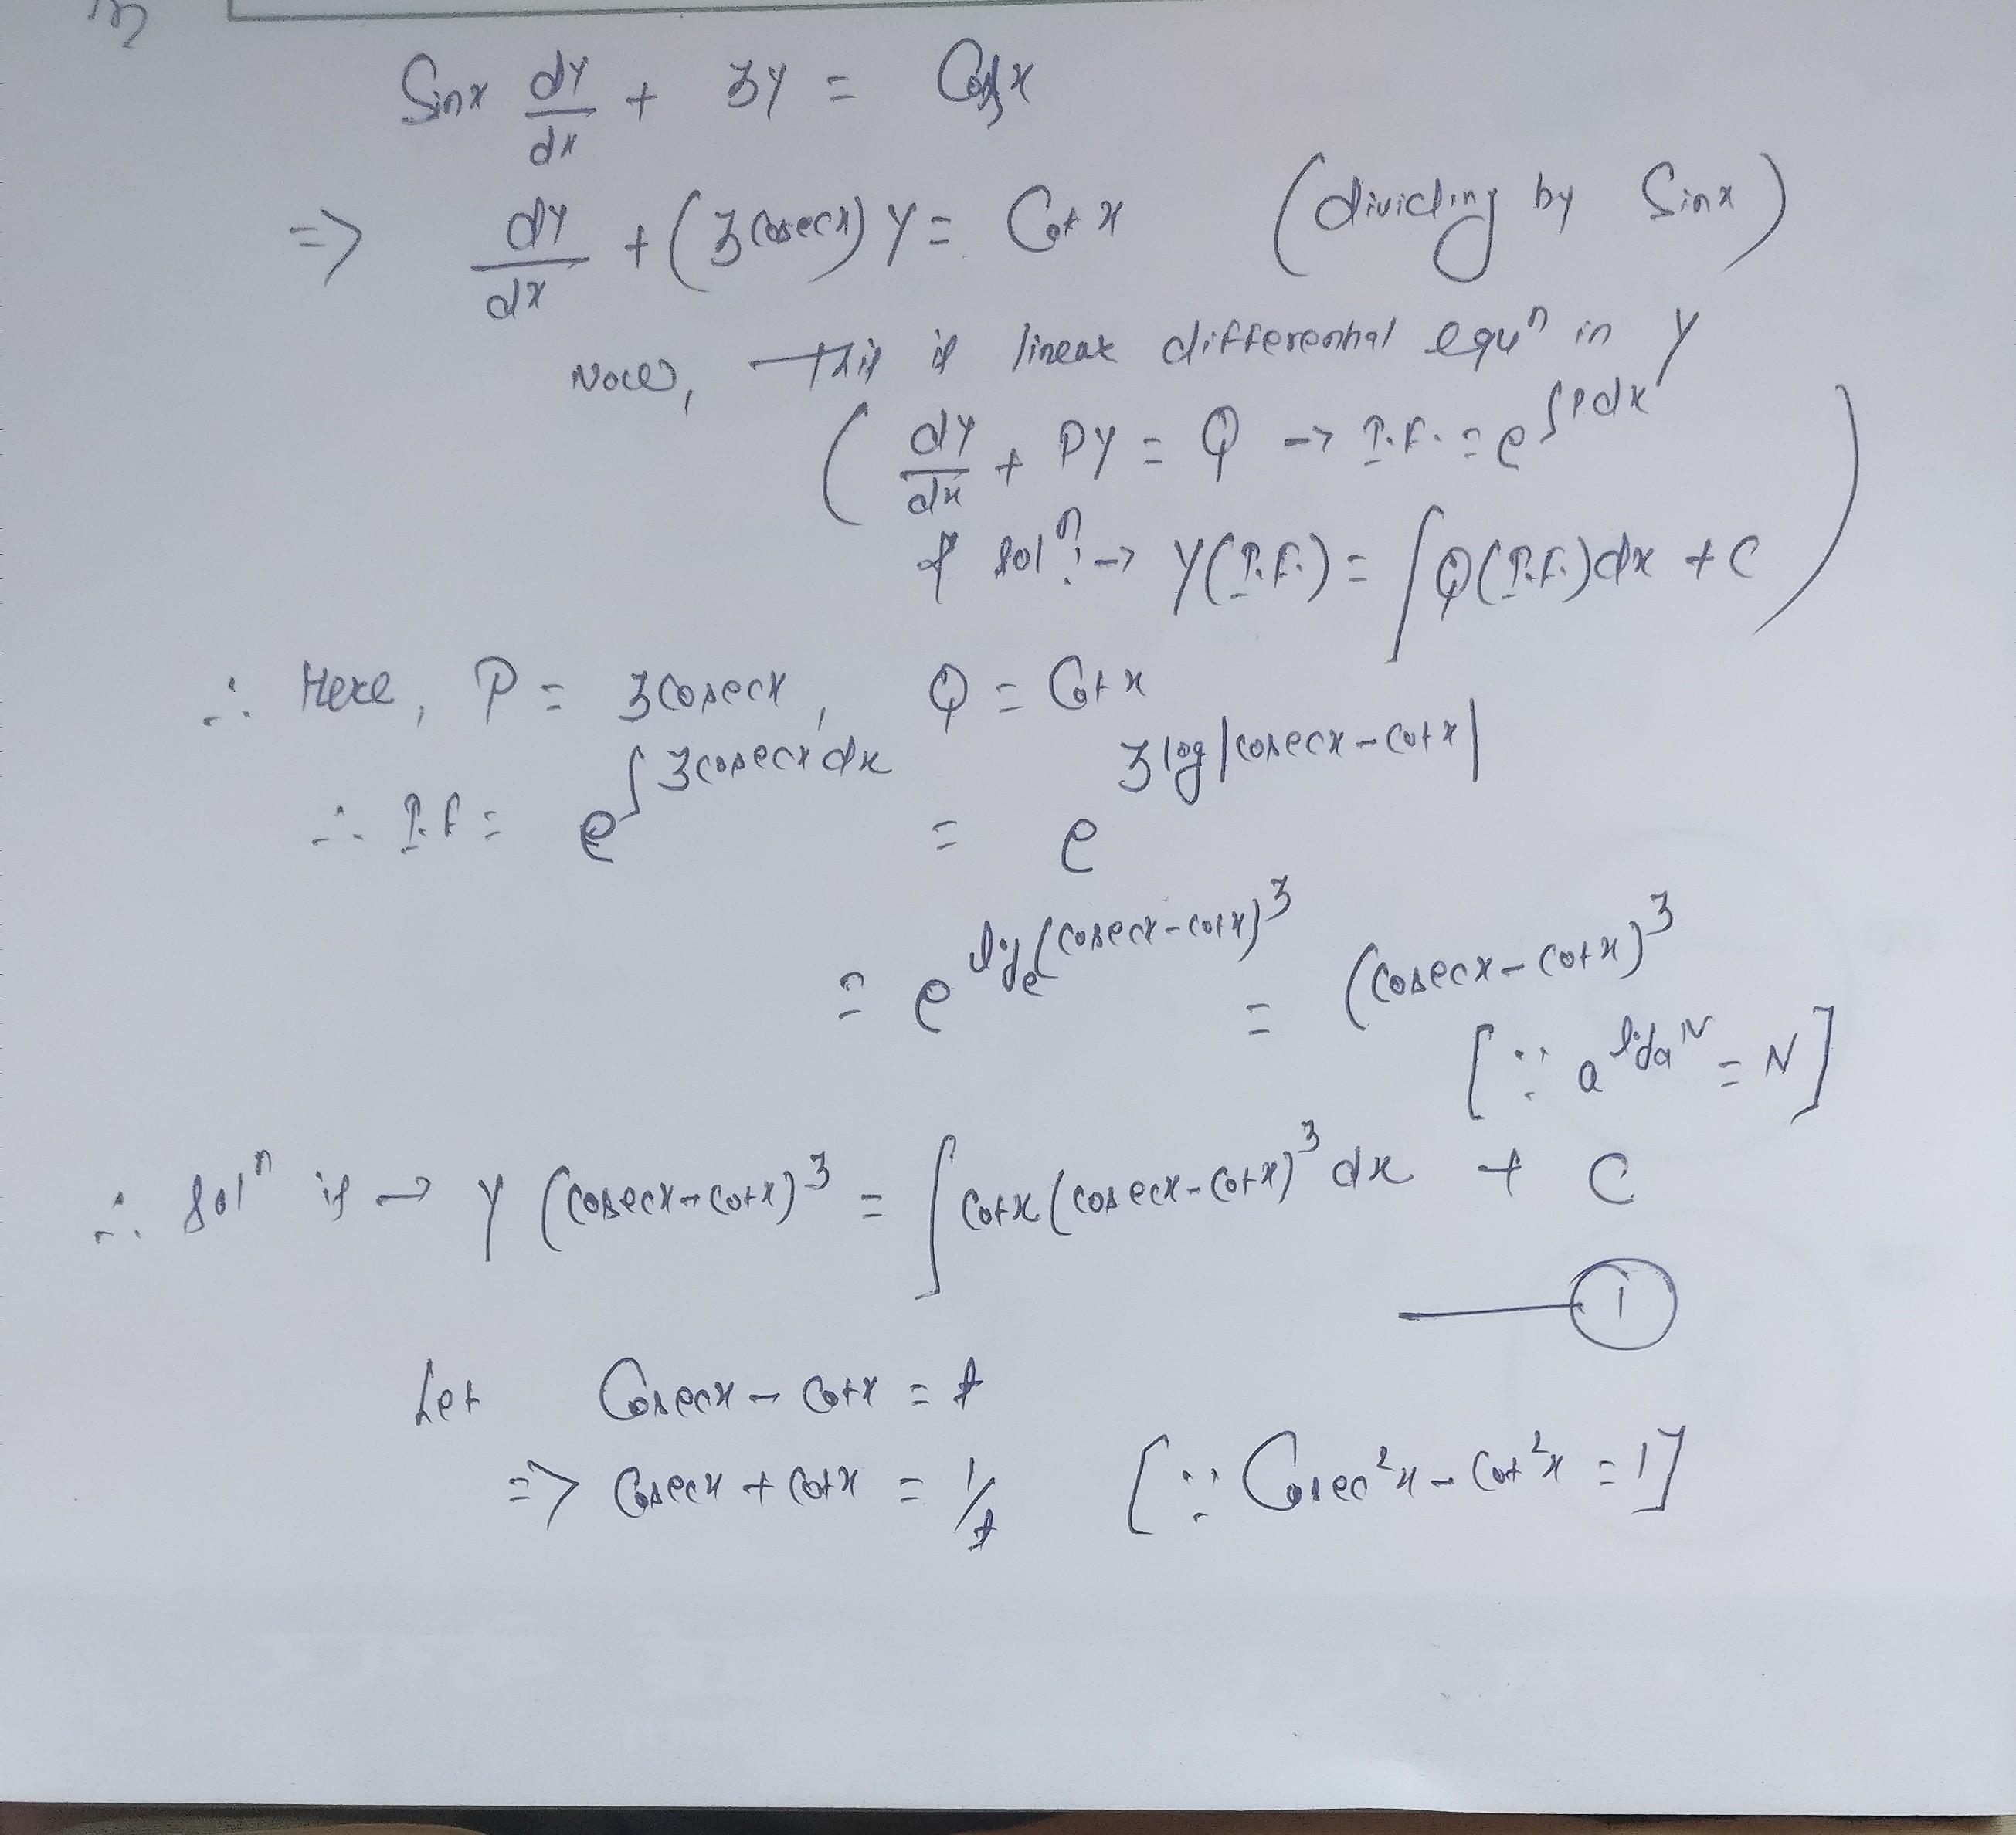 Sinx dy/dx + 3y = Cosx
=> dy/dx + (3cosecx) y = Cotx (dividing by Sinx)
Now, this is linear differential equⁿ in y
( dy/dx + Py = Q -> I.F. = e^∫Pdx
& solⁿ: -> y(I.F.) = ∫Q(I.F.)dx + C )
∴ Here, P = 3cosecx, Q = Cotx
∴ I.F = e^∫3cosecx dx = e^3log|cosecx-cotx|
= e^logₑ(cosecx-cotx)³ = (cosecx-cotx)³
[∵ a^logₐN = N]
∴ solⁿ is -> y (cosecx-cotx)³ = ∫cotx(cosecx-cotx)³ dx + C
— 1
Let Cosecx - Cotx = t
=> Cosecx + Cotx = 1/t [∵ Cosec²x - Cot²x = 1]